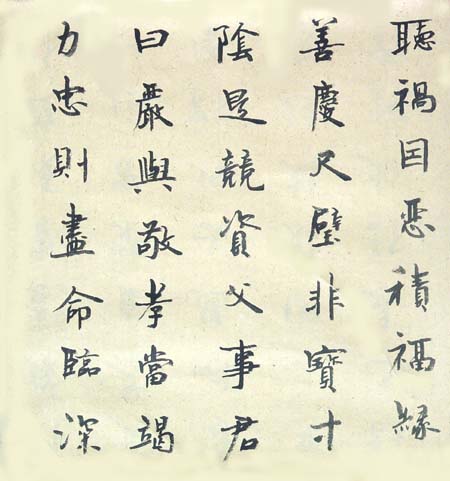 聽禍因惡積福緣
善慶尺璧非寶寸
陰是競資父事君
曰嚴與敬孝當竭
力忠則盡命臨深